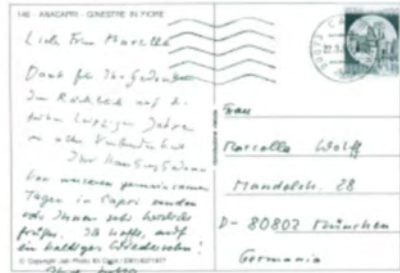 146 - ANACAPRI - GINESTRE IN FIORE
Liebe Frau Marcella
Dank für Ihr Gedenken
Im Rückblick auf die
frühen Leipziger Jahre
in alter Verbundenheit
Ihr Hans-Georg Gadamer
Von unseren gemeinsamen
Tagen in Capri senden
wir Ihnen sehr herzliche
Grüße. Ich hoffe, auf
ein baldiges Wiedersehn!
Frau
Marcella Wolff
Mandlstr. 28
D- 80802 München
Germania